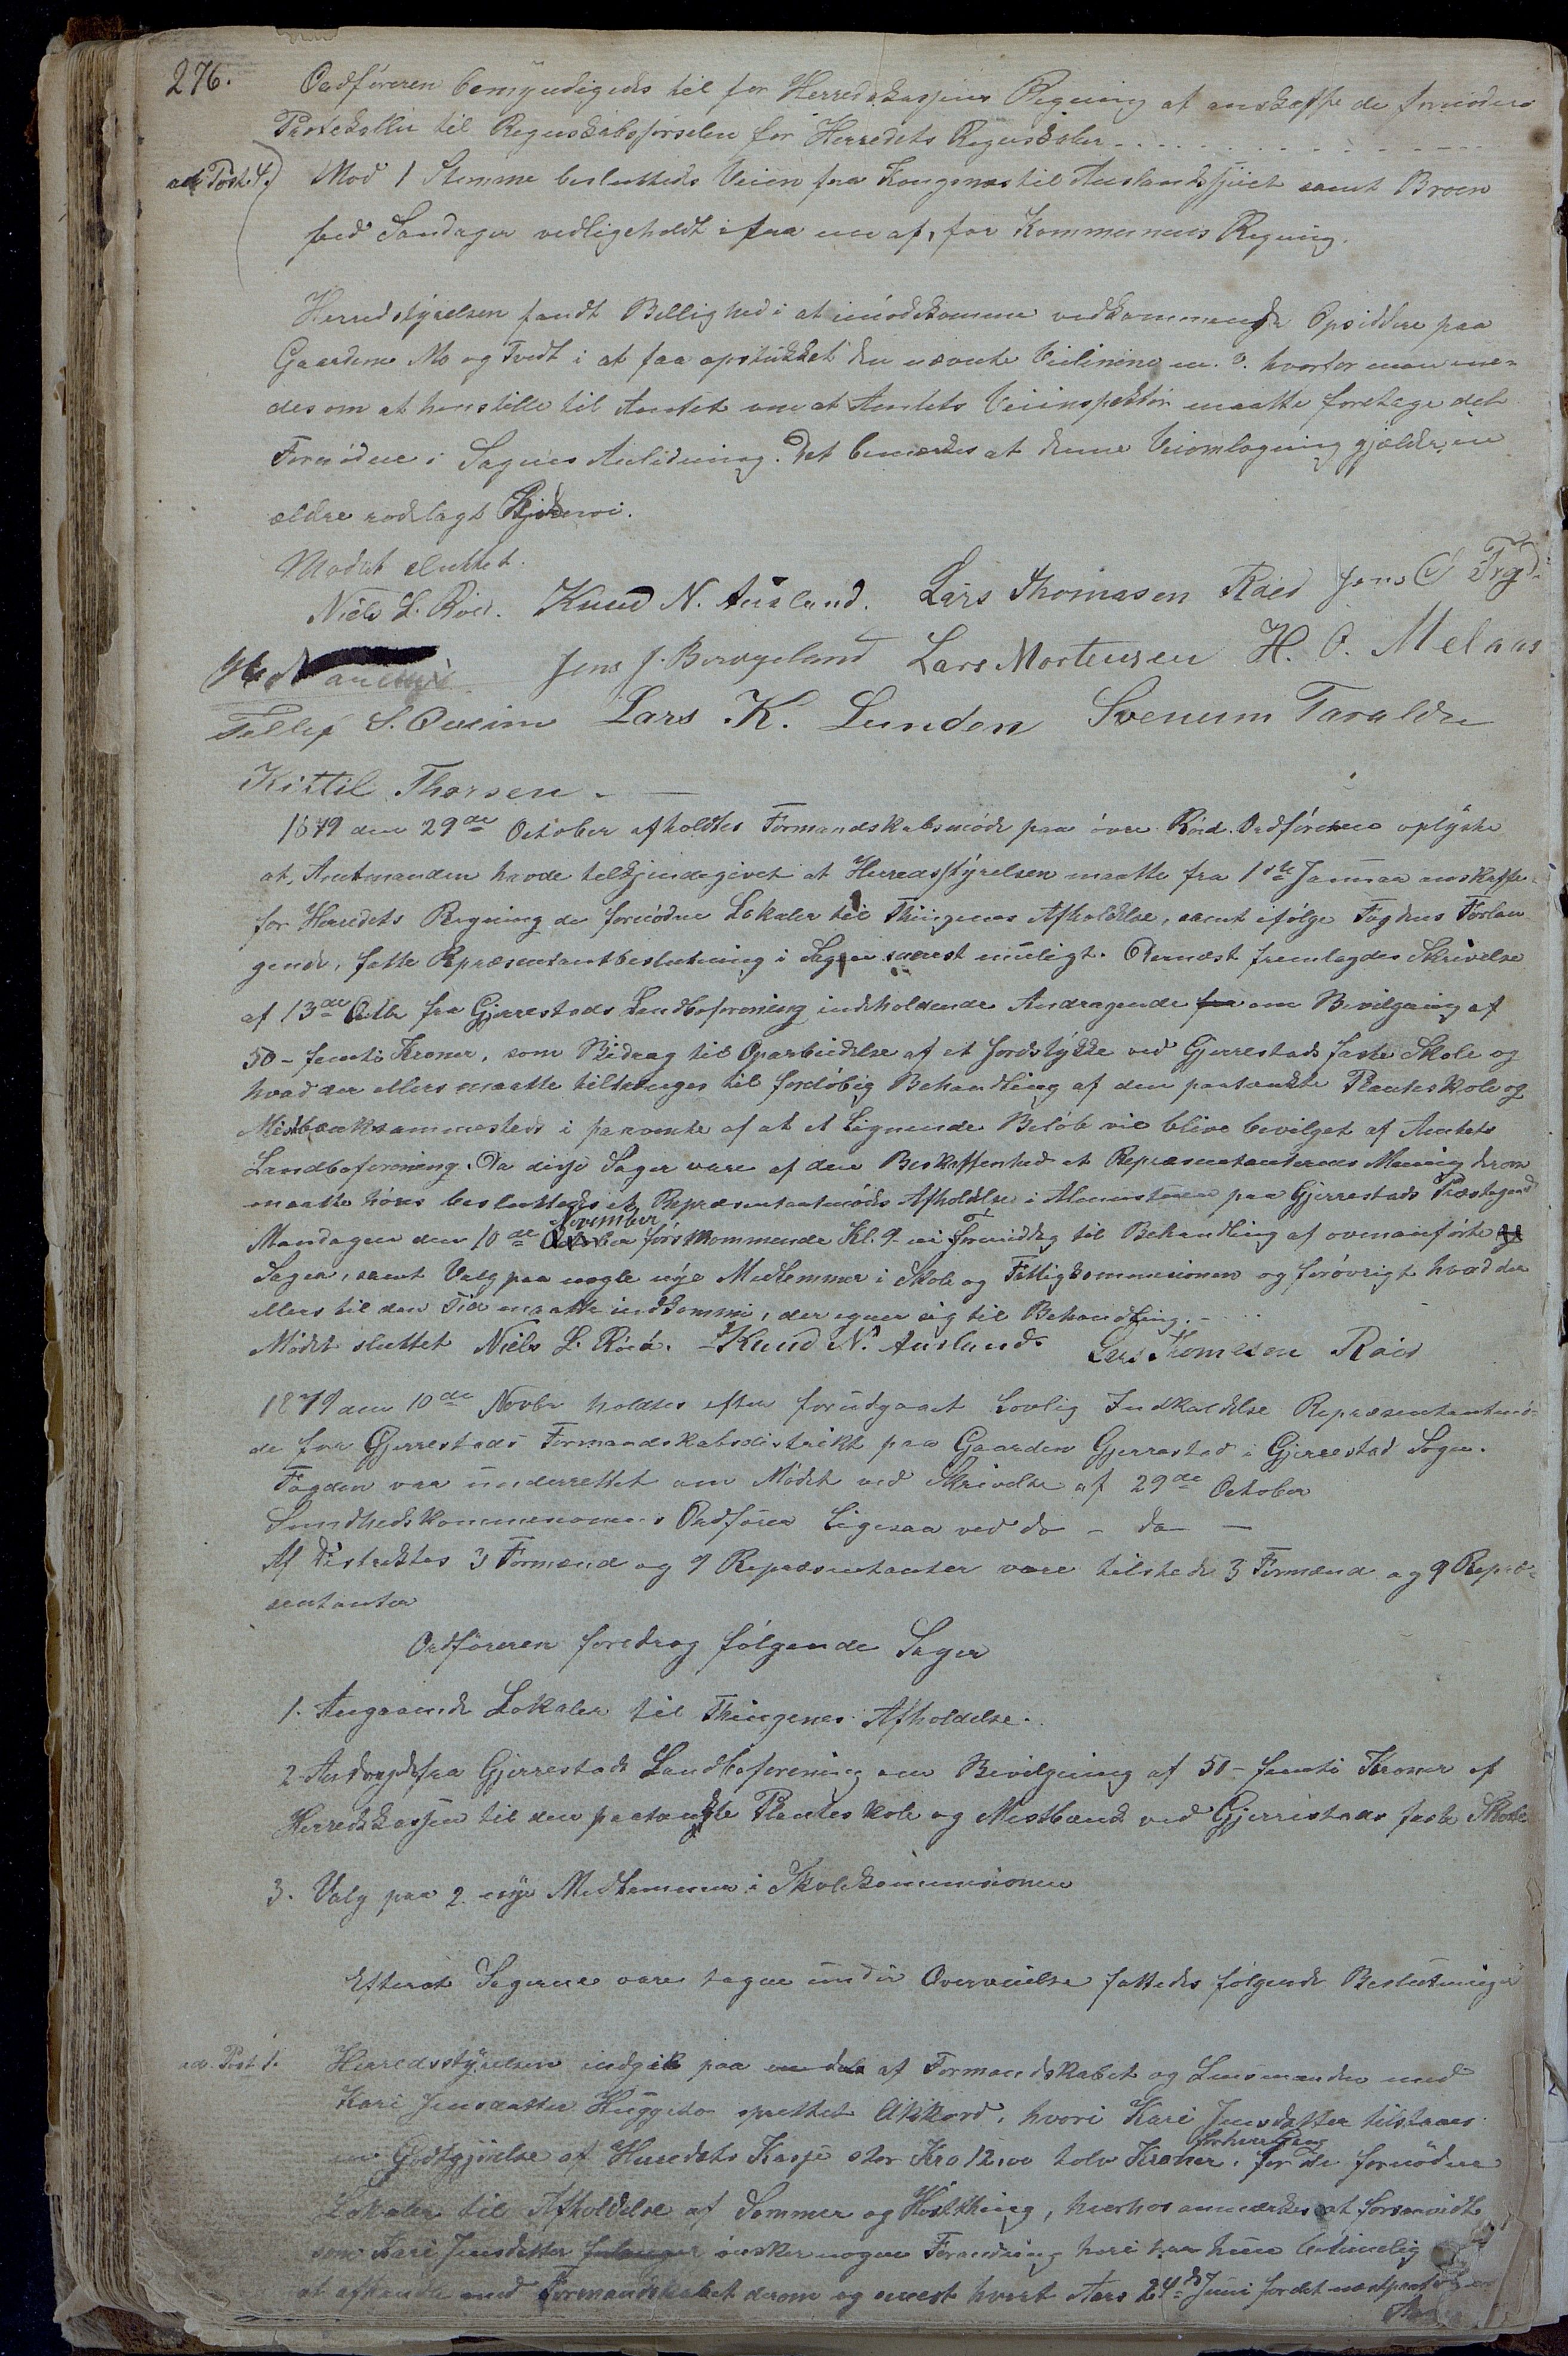 276.
Ordføreren bemyndigedes til for Herredskassens Regning at anskaffe de fornødne
Protokoller til Regnskabsførselen for Herredets Regnskaber
ad Post 4.) Mod 1 Stemme besluttedes Veien fra Kongsnæs til Auslandsfjæret samt Broen
ved Sandager vedligeholdt ifra nu af, for Kommunens Regning.
Herredstyrelsen fandt Billighed i at imødekomme vedkommende Opsiddere paa
Gaardene Mo og Tvedt i at faa opstukket den nævnte Veilinie m. v. hvorfor man ene-
des om at henstille til Amtet om at Amtets Veiinspektør maatte foretage det
Fornødne i Sagens Anledning. Det bemærkes at denne Veiomlægning gjælder en
ældre rodelagt Bygdevei.
Mødet sluttet.
Niels L. Røed. Knud N. Ausland. Lars Thomasen Røed Jens O
Jens J. Bergeland Lars Mortensen H. O. Melaas
Tellef S. Qveim Lars K. Lunden Svenum Taraldsen
Kittil Thorsen.
1879 den 29de October afholdtes Formandskabsmøde paa øvre Røed. Ordføreren oplyste
at Amtmanden havde tilkjendegivet at Herredsstyrelsen maatte fra 1ste Januar anskaffe
for Herredets Regning de fornødne Lokaler til Thingenes Afholdelse, samt ifølge Fogdens Forlan-
gende, fatte Repræsentantbeslutning i Sagen snarest muligt. Dernæst fremlagdes Skrivelse
af 13de Octbr fra Gjerrestads Landboforening indeholdende Andragende fra om Bevilgning af
50 - femti Kroner, som Bidrag til Oparbeidelse af et Jordstykke ved Gjerrestads faste Skole og
hvad der ellers maatte tiltrænges til foreløbig Behandling af den paatænkte Planteskole og
Mistbænk sammesteds i paavente af at et Lignende Beløb vil blive bevilget af Amtets
Landboforening. Da disse Sager vare af den Beskaffenhed at Repræsentanternes Mening derom
maatte høres besluttedes et Repræsentantmødes Afholdelse i Almuestuen paa Gjerrestads Præstegaard
November
Mandagen den 10de October førstkommende Kl. 9 om Formiddag til Behandling af ovenanførte og
Sager, samt Valg paa nogle nye Medlemmer i Skole og Fattigkommisionen og forøvrigt hvad der
ellers til den Tid maatte indkomme, der egner sig til Behandling.
Mødet sluttet Niels L. Røed. Knud N. Ausland. Lars Thomasen Røed
1879 den 10de Novbr holdtes efter forudgaaet Lovlig Indkaldelse Repræsentantmø-
de for Gjerrestads Formandskabsdistrikt paa Gaarden Gjerrestad i Gjerrestad Sogn.
Fogden var underrettet om Mødet ved Skrivelse af 29de October
Sundhedskommisionens Ordfører Ligesaa ved do - do -
Af Distriktes 3 Formænd og 9 Repræsentanter vare tilstede 3 Formænd og 9 Repræ-
sentanter
Ordføreren foredrog følgende Sager
1. Angaaende Lokaler til Thingenes Afholdelse.
2. Andragde fra Gjerrestads Landboforening om Bevilgning af 50 - femti Kroner af
Herredskassen til den paatænkte Planteskole og Mistbænk ved Gjerrestads faste Skole
3. Valg paa 2 nye Medlemmer i Skolekommisionen
Efterat Sagerne vare tagne under Overveielse fattedes følgende Beslutninger
ad. Post 1. Herredsstyrelsen indgik paa en del af Formandskabet og Lensmanden med
Kari Jensdatter Huggeto oprettet Akkord, hvori Kari Jensdatter tilstaaes
for hver Gang
en Godtgjørelse af Herredets Kasse stor Kro 12,00 tolv Kroner, for de fornødne
Lokaler til Afholdelse af Sommer og Høstthing, hvorhos anmærkes at forsaavidt
som Kari Jensdatter forlanger ønsker nogen Forandring heri har hun betimelig
at afhandle med Formandskabet derom og senest hvert Aars 24de Juni for det næstpaafølgende